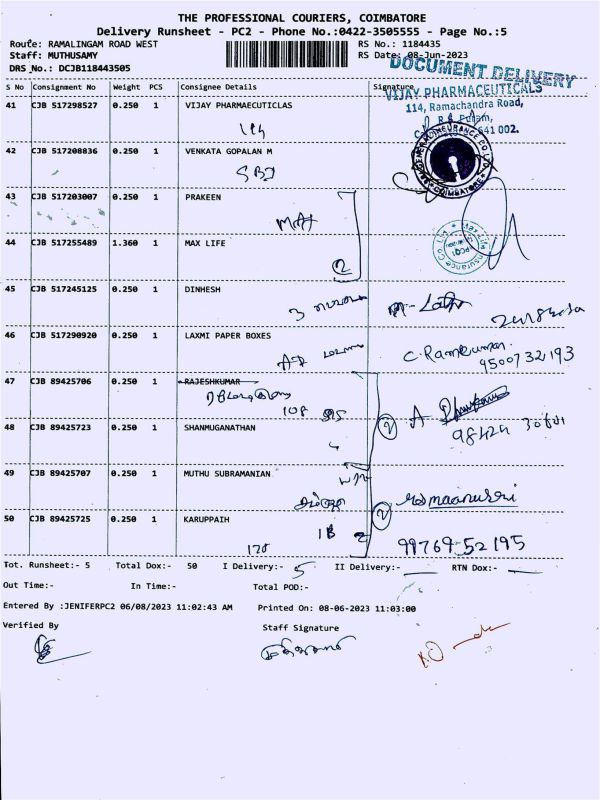 THE PROFESSIONAL COURIERS, COIMBATORE
Delivery Runsheet - PC2 - Phone No.:0422-3505555 - Page No.:5
Route: RAMALINGAM ROAD WEST RS No.: 1184435
Staff: MUTHUSAMY RS Date: 08-Jun-2023
DRS No.: DCJB118443505
DOCUMENT DELIVERY
S No Consignment No Weight PCS Consignee Details Signature
VIJAY PHARMACEUTICALS
41 CJB 517298527 0.250 1 VIJAY PHARMAECUTICLAS
114, Ramachandra Road,
R.S. Puram,
641 002.
42 CJB 517208836 0.250 1 VENKATA GOPALAN M
COIMBATORE
SBI
43 CJB 517203007 0.250 1 PRAKEEN
44 CJB 517255489 1.360 1 MAX LIFE
2
45 CJB 517245125 0.250 1 DINHESH
46 CJB 517290920 0.250 1 LAXMI PAPER BOXES
C. Ramkumar
9500732193
47 CJB 89425706 0.250 1 RAJESHKUMAR
108
48 CJB 89425723 0.250 1 SHANMUGANATHAN
2
49 CJB 89425707 0.250 1 MUTHU SUBRAMANIAN
2
50 CJB 89425725 0.250 1 KARUPPAIH
18
99769-52195
Tot. Runsheet:- 5 Total Dox:- 50 I Delivery:- 5 II Delivery:- RTN Dox:-
Out Time:- In Time:- Total POD:-
Entered By :JENIFERPC2 06/08/2023 11:02:43 AM Printed On: 08-06-2023 11:03:00
Verified By Staff Signature